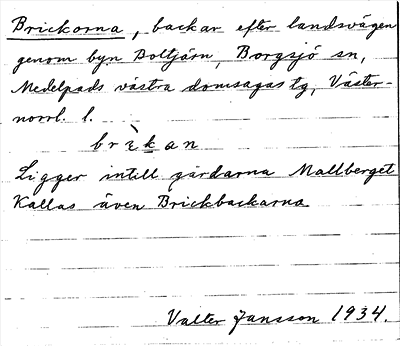 Brickorna, backar efter landsvägen
genom byn Boltjärn, Borgsjö sn,
Medelpads västra domsagas tg, Väster-
norrl. l.
brìkan
Ligger intill gårdarna Mallberget
Kallas även Brickbackarna
Valter Jansson 1934.